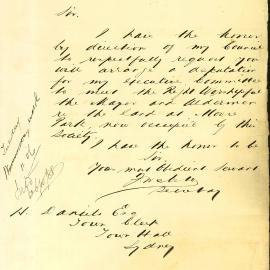 Sir.
I have the honor
by direction of my Council
to respectfully request you
will arrange a deputation
for my Executive Committee
to meet the Right Worshipful
the Mayor and Aldermen
re the land at Moore
Park now occupied by this
Society.
I have the honor to be
Sir,
Your most Obedient Servant
Secretary
H. Daniels Esq
Town Clerk
Town Hall
Sydney
Tuesday